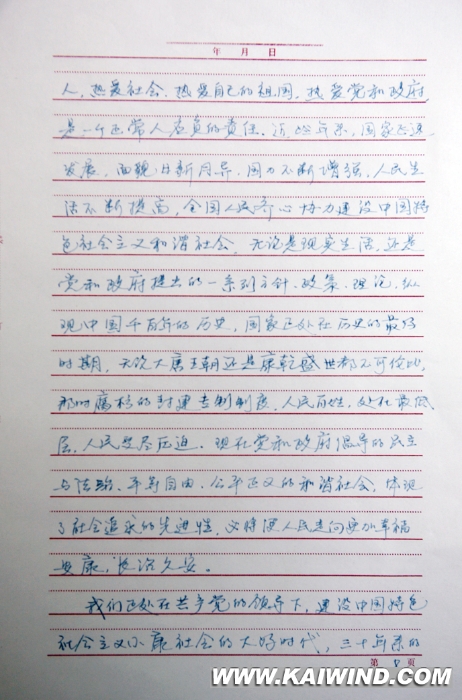 年 月 日
人,热爱社会、热爱自己的祖国,热爱党和政府
是一个正常人应负的责任。近些年来,国家迅速
发展,面貌日新月异,国力不断增强,人民生
活不断提高,全国人民齐心协力建设中国特
色社会主义和谐社会,无论是现实生活,还是
党和政府提出的一系列方针、政策、理论,纵
观中国千百年的历史,国家正处在历史的最好
时期,无论大唐王朝还是康乾盛世都不可伦比,
那时腐朽的封建专制制度,人民百姓,处在最低
层,人民受尽压迫。现在党和政府倡导的民主
与法治、平等自由、公平正义的和谐社会,体现
了社会追求的先进性,必将使人民走向更加幸福
安康,长治久安。
我们正处在共产党的领导下,建设中国特色
社会主义小康社会的大好时代,三十年来的
第 页
WWW.KAIWIND.COM